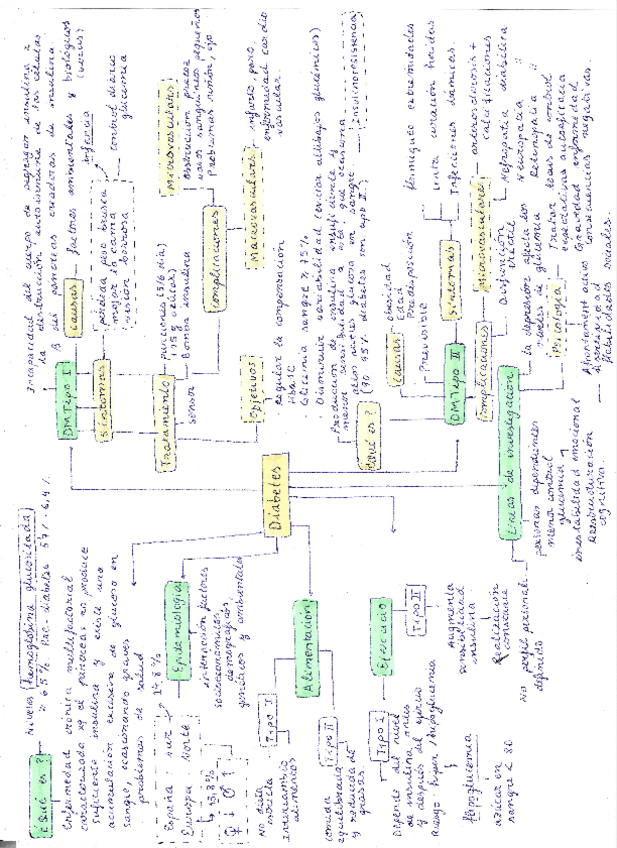 ¿Qué es?
Niveles (hemoglobina glucosilada)
≥ 6,5% Pac. diabetes 5,7% - 6,4%
Enfermedad crónica multifactorial
caracterizada xq el páncreas no produce
suficiente insulina y existe una
acumulación excesiva de glucosa en
sangre, ocasionando graves
problemas de salud
Diabetes
Epidemiología
España: sur
Europa: Norte
13,8%
intersección factores
socioeconómicos
demográficos,
genéticos y ambientales
Alimentación
Tipo I
No dieta
estricta
Intercambio
alimentos
Tipo II
comida
equilibrada
y reducida de
grasas
Ejercicio
Tipo I
Depende del nivel
de insulina antes
y después del ejercicio
Riesgo hiper/hipoglucemia
Hipoglucemia
azúcar en
sangre < 80
Tipo II
Augmenta
sensibilidad
insulina
Realización
constante
DM Tipo I
Incapacidad del cuerpo de segregar insulina x
la destrucción autoinmune de las células
β del páncreas creadoras de insulina
causas
factores ambientales y biológicos
(virus)
síntomas
pérdida peso brusca
mojar la cama
visión borrosa
infancia
control diario
glucemia
Tratamiento
punciones (5/6 día)
(15 g azúcar)
Bomba insulina
sensor
complicaciones
Microvasculares
obstrucción precoz
vasos sanguíneos pequeños
problemas riñón, ojo
Macrovasculares
infarto, paro,
enfermedad cardio
vascular.
Objetivos
Regular la compensación
HbA1C
Glicemia sangre
Disminuir variabilidad (evitar altibajos glucémicos)
DM Tipo II
¿Qué es?
Producción de insulina insuficiente y
menor sensibilidad a esta, que ocasiona
altos niveles glucosa en sangre.
(90-95% diabetes son tipo 2)
Insulinoresistencia
causas
obesidad
Edad
Predisposición
Prevenible
síntomas
Hormigueo extremidades
Lenta curación heridas
Infecciones dérmicas.
complicaciones
microvasculares
arterosclerosis +
calcificaciones
Nefropatía diabética
Neuropatía "
Retinopatía "
Disfunción
eréctil
Líneas de investigación
personas dependientes
menor control
glucemia y
inestabilidad emocional
Reestructuración
cognitiva.
No perfil personal.
definido
la depresión afecta los
niveles de glucemia
Psicología
Tratar locus de control
expectativas autoeficacia
Gravedad enfermedad
consecuencias negativas.
Afrontament activo
Ansiedad
Habilidades sociales.